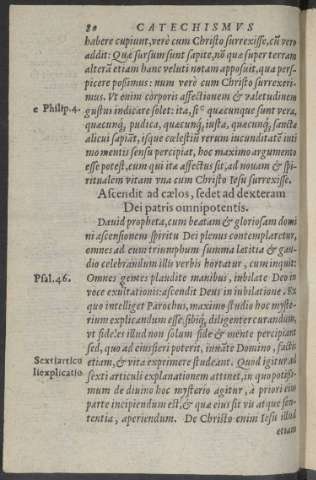 80 CATECHISMVS
habere cupiunt, verè cum Christo surrexisse, cũ verò
addit: Quæ sursum sunt sapite, nõ quæ super terram
alterã etiam hanc veluti notam apposuit, qua pers-
picere possimus: num verè cum Christo surrexeri-
mus. Vt enim corporis affectionem & valetudinem
e Philip.4.
gustus indicare solet: ita, si e quæcunque sunt vera,
quæcunq;, pudica, quæcunq;, iusta, quæcunq;, sancta
alicui sapiãt, isque cœlestiũ rerum iucunditatẽ inti
mo mentis sensu percipiat, hoc maximo argumento
esse potest, cum qui ita affectus sit, ad nouam & spi-
ritualem vitam vna cum Christo Iesu surrexisse.
Ascendit ad cælos, sedet ad dexteram
Dei patris omnipotentis.
Dauid propheta, cum beatam & gloriosam domi
ni ascensionem spiritu Dei plenus contemplaretur,
omnes ad eum triumphum summa lætitia & gau-
dio celebrandum illis verbis hortatur, cum inquit:
Psal.46.
Omnes gentes plaudite manibus, iubilate Deo in
voce exultationis: ascendit Deus in iubilatione. Ex
quo intelliget Parochus, maximo studio hoc myste-
rium explicandum esse: sibiq;, diligenter curandum,
vt fideles illud non solum fide & mente percipiant
sed, quo ad eius fieri poterit, iuuãte Domino, factis
Sexti articu
li explicatio
etiam, & vita exprimere studeant. Quod igitur ad
sexti articuli explanationem attinet, in quo potissi-
mum de diuino hoc mysterio agitur, à priori eius
parte incipiendum est, & quæ eius sit vis atque sen-
tentia, aperiendum. De Christo enim Iesu illud
etiam